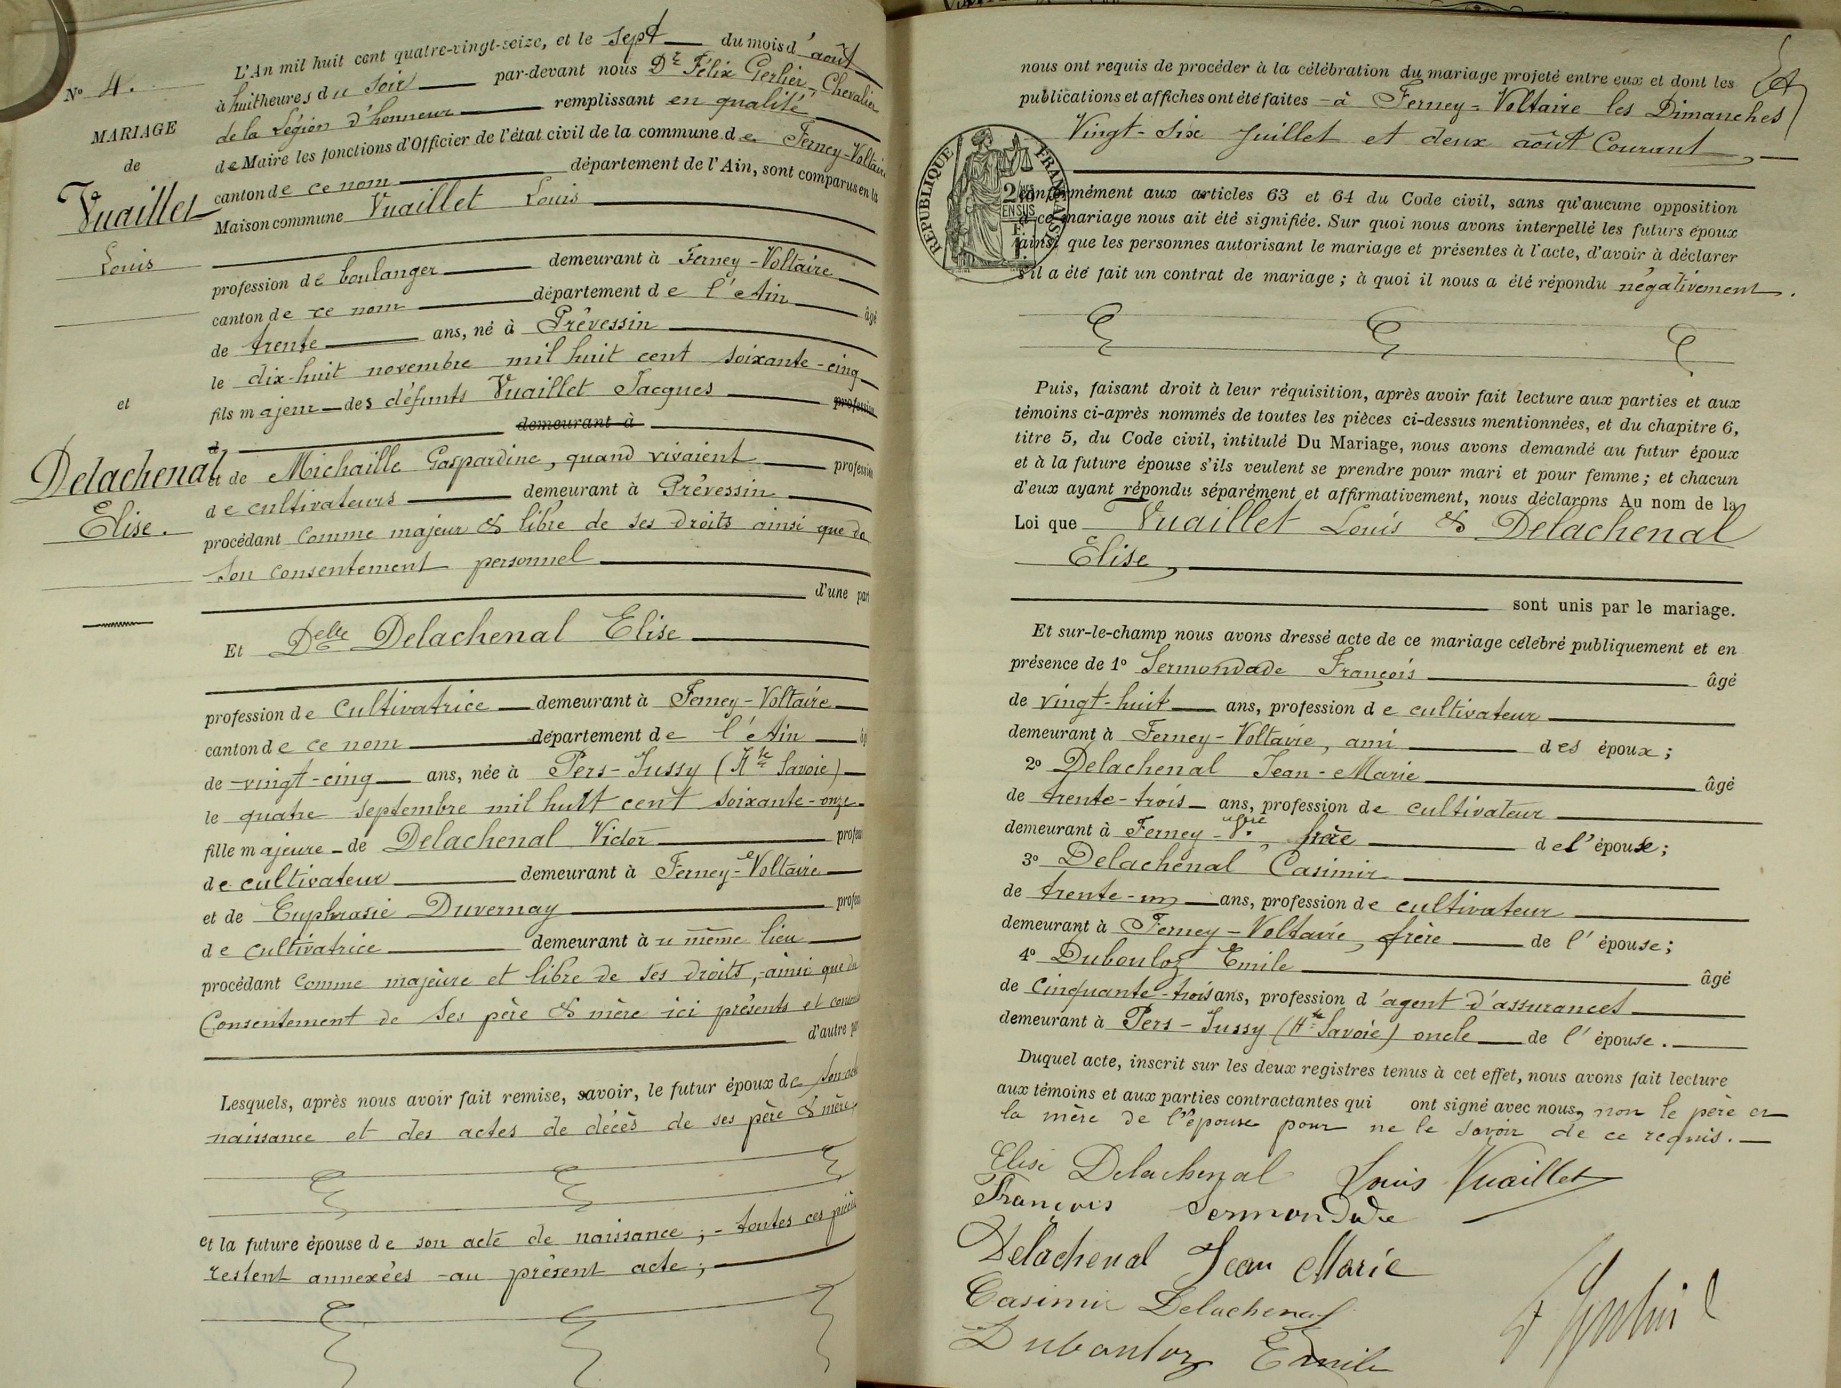 L'An mil huit cent quatre-vingt-seize, et le sept du mois d'août
N° 4. à huit heures du soir par-devant nous Dr Félix Gerlier, Chevalier
de la Légion d'honneur remplissant en qualité
MARIAGE
de Maire les fonctions d'Officier de l'état civil de la commune de Ferney-Voltaire
de
canton de ce nom département de l'Ain, sont comparus en la
Vuaillet
Maison commune Vuaillet Louis
Louis
profession de boulanger demeurant à Ferney-Voltaire
canton de ce nom département de l'Ain âgé
de trente ans, né à Prévessin
le dix-huit novembre mil huit cent soixante-cinq
et
fils majeur des défunts Vuaillet Jacques profession
d demeurant à
Delachenal
et de Michaille Gaspardine, quand vivaient profession
Elise.
de cultivateurs demeurant à Prévessin
procédant comme majeur & libre de ses droits ainsi que de
son consentement personnel
d'une part
Et Delle Delachenal Elise
profession de cultivatrice demeurant à Ferney-Voltaire
canton de ce nom département de l'Ain
de vingt-cinq ans, née à Pers-Jussy (Hte Savoie)
le quatre septembre mil huit cent soixante-onze
fille majeure de Delachenal Victor profess
de cultivateur demeurant à Ferney-Voltaire
et de Euphrasie Duvernay profess
de cultivatrice demeurant à u même lieu
procédant comme majeure et libre de ses droits, ainsi que du
Consentement de ses père & mère ici présents et
d'autre par
Lesquels, après nous avoir fait remise, savoir, le futur époux de son acte
naissance et des actes de décès de ses père & mère,
et la future épouse de son acte de naissance ; - toutes ces pièces
restent annexées au présent acte ;
nous ont requis de procéder à la célébration du mariage projeté entre eux et dont les
publications et affiches ont été faites à Ferney-Voltaire les Dimanches
Vingt-six Juillet et deux août Courant,
RÉPUBLIQUE FRANÇAISE
2/10es
EN SUS
conformément aux articles 63 et 64 du Code civil, sans qu'aucune opposition
à ce mariage nous ait été signifiée. Sur quoi nous avons interpellé les futurs époux
ainsi que les personnes autorisant le mariage et présentes à l'acte, d'avoir à déclarer
s'il a été fait un contrat de mariage ; à quoi il nous a été répondu négativement.
Puis, faisant droit à leur réquisition, après avoir fait lecture aux parties et aux
témoins ci-après nommés de toutes les pièces ci-dessus mentionnées, et du chapitre 6,
titre 5, du Code civil, intitulé Du Mariage, nous avons demandé au futur époux
et à la future épouse s'ils veulent se prendre pour mari et pour femme ; et chacun
d'eux ayant répondu séparément et affirmativement, nous déclarons Au nom de la
Loi que Vuaillet Louis & Delachenal
Elise,
sont unis par le mariage.
Et sur-le-champ nous avons dressé acte de ce mariage célébré publiquement et en
présence de 1° Sermondade François âgé
de vingt-huit ans, profession de cultivateur
demeurant à Ferney-Voltaire, ami des époux ;
2° Delachenal Jean-Marie âgé
de trente-trois ans, profession de cultivateur
demeurant à Ferney-V. frère de l'épouse ;
3° Delachenal Casimir
de trente-un ans, profession de cultivateur
demeurant à Ferney-Voltaire, frère de l'épouse ;
4° Dubouloz Emile âgé
de cinquante-trois ans, profession d'agent d'assurances
demeurant à Pers-Jussy (Hte Savoie) oncle de l'épouse.
Duquel acte, inscrit sur les deux registres tenus à cet effet, nous avons fait lecture
aux témoins et aux parties contractantes qui ont signé avec nous, non le père et
la mère de l'épouse pour ne le savoir de ce requis.
Elise Delachenal Louis Vuaillet
François Sermondade
Delachenal Jean Marie
Casimir Delachenal
Dubouloz Emile